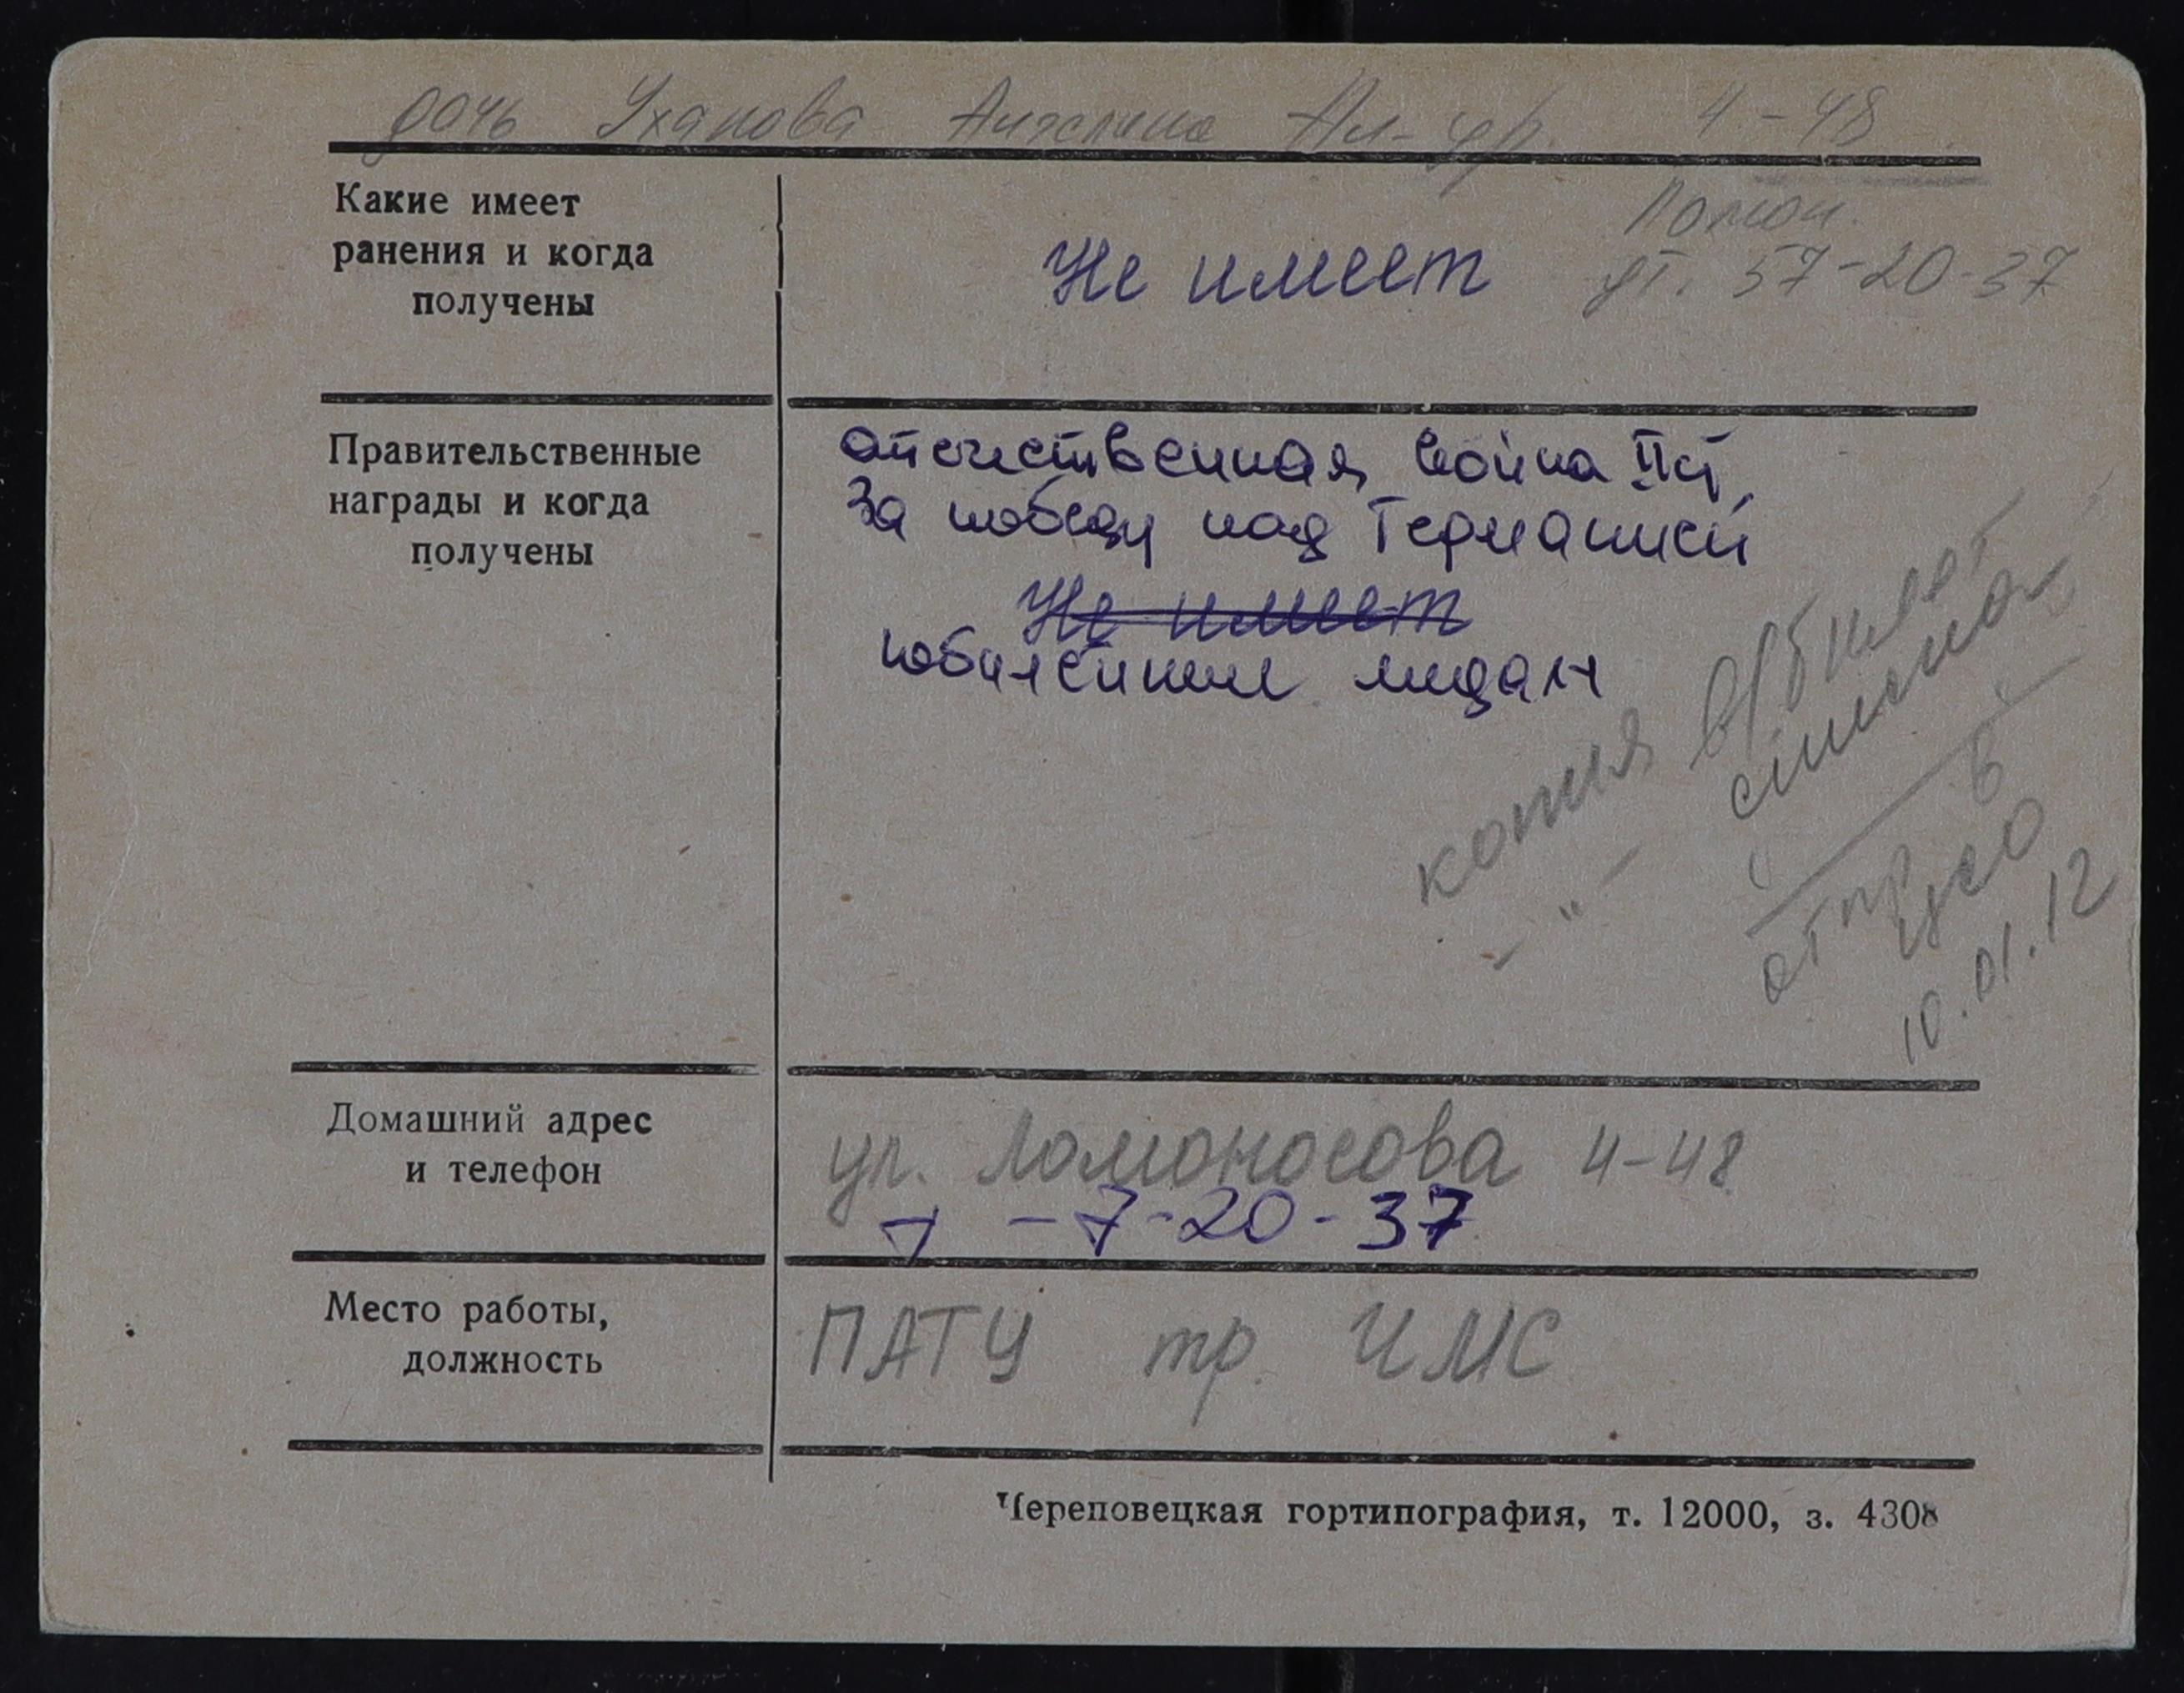 дочь Уханова Ангелина Ал-др. 4-48
Какие имеет
ранения и когда
получены
Не имеет
Ломон.
д т. 57-20-37
Правительственные
награды и когда
получены
отечественная война II ст,
За победу над Германией
Не имеет
юбилейные медали
копия в/билет
- " -
отпр в
10.01.12
Домашний адрес
и телефон
ул. Ломоносова 4-48
т -7-20-37
Место работы,
должность
ПАТУ тр. ЧМС
Череповецкая гортипография, т. 12000, з. 4308